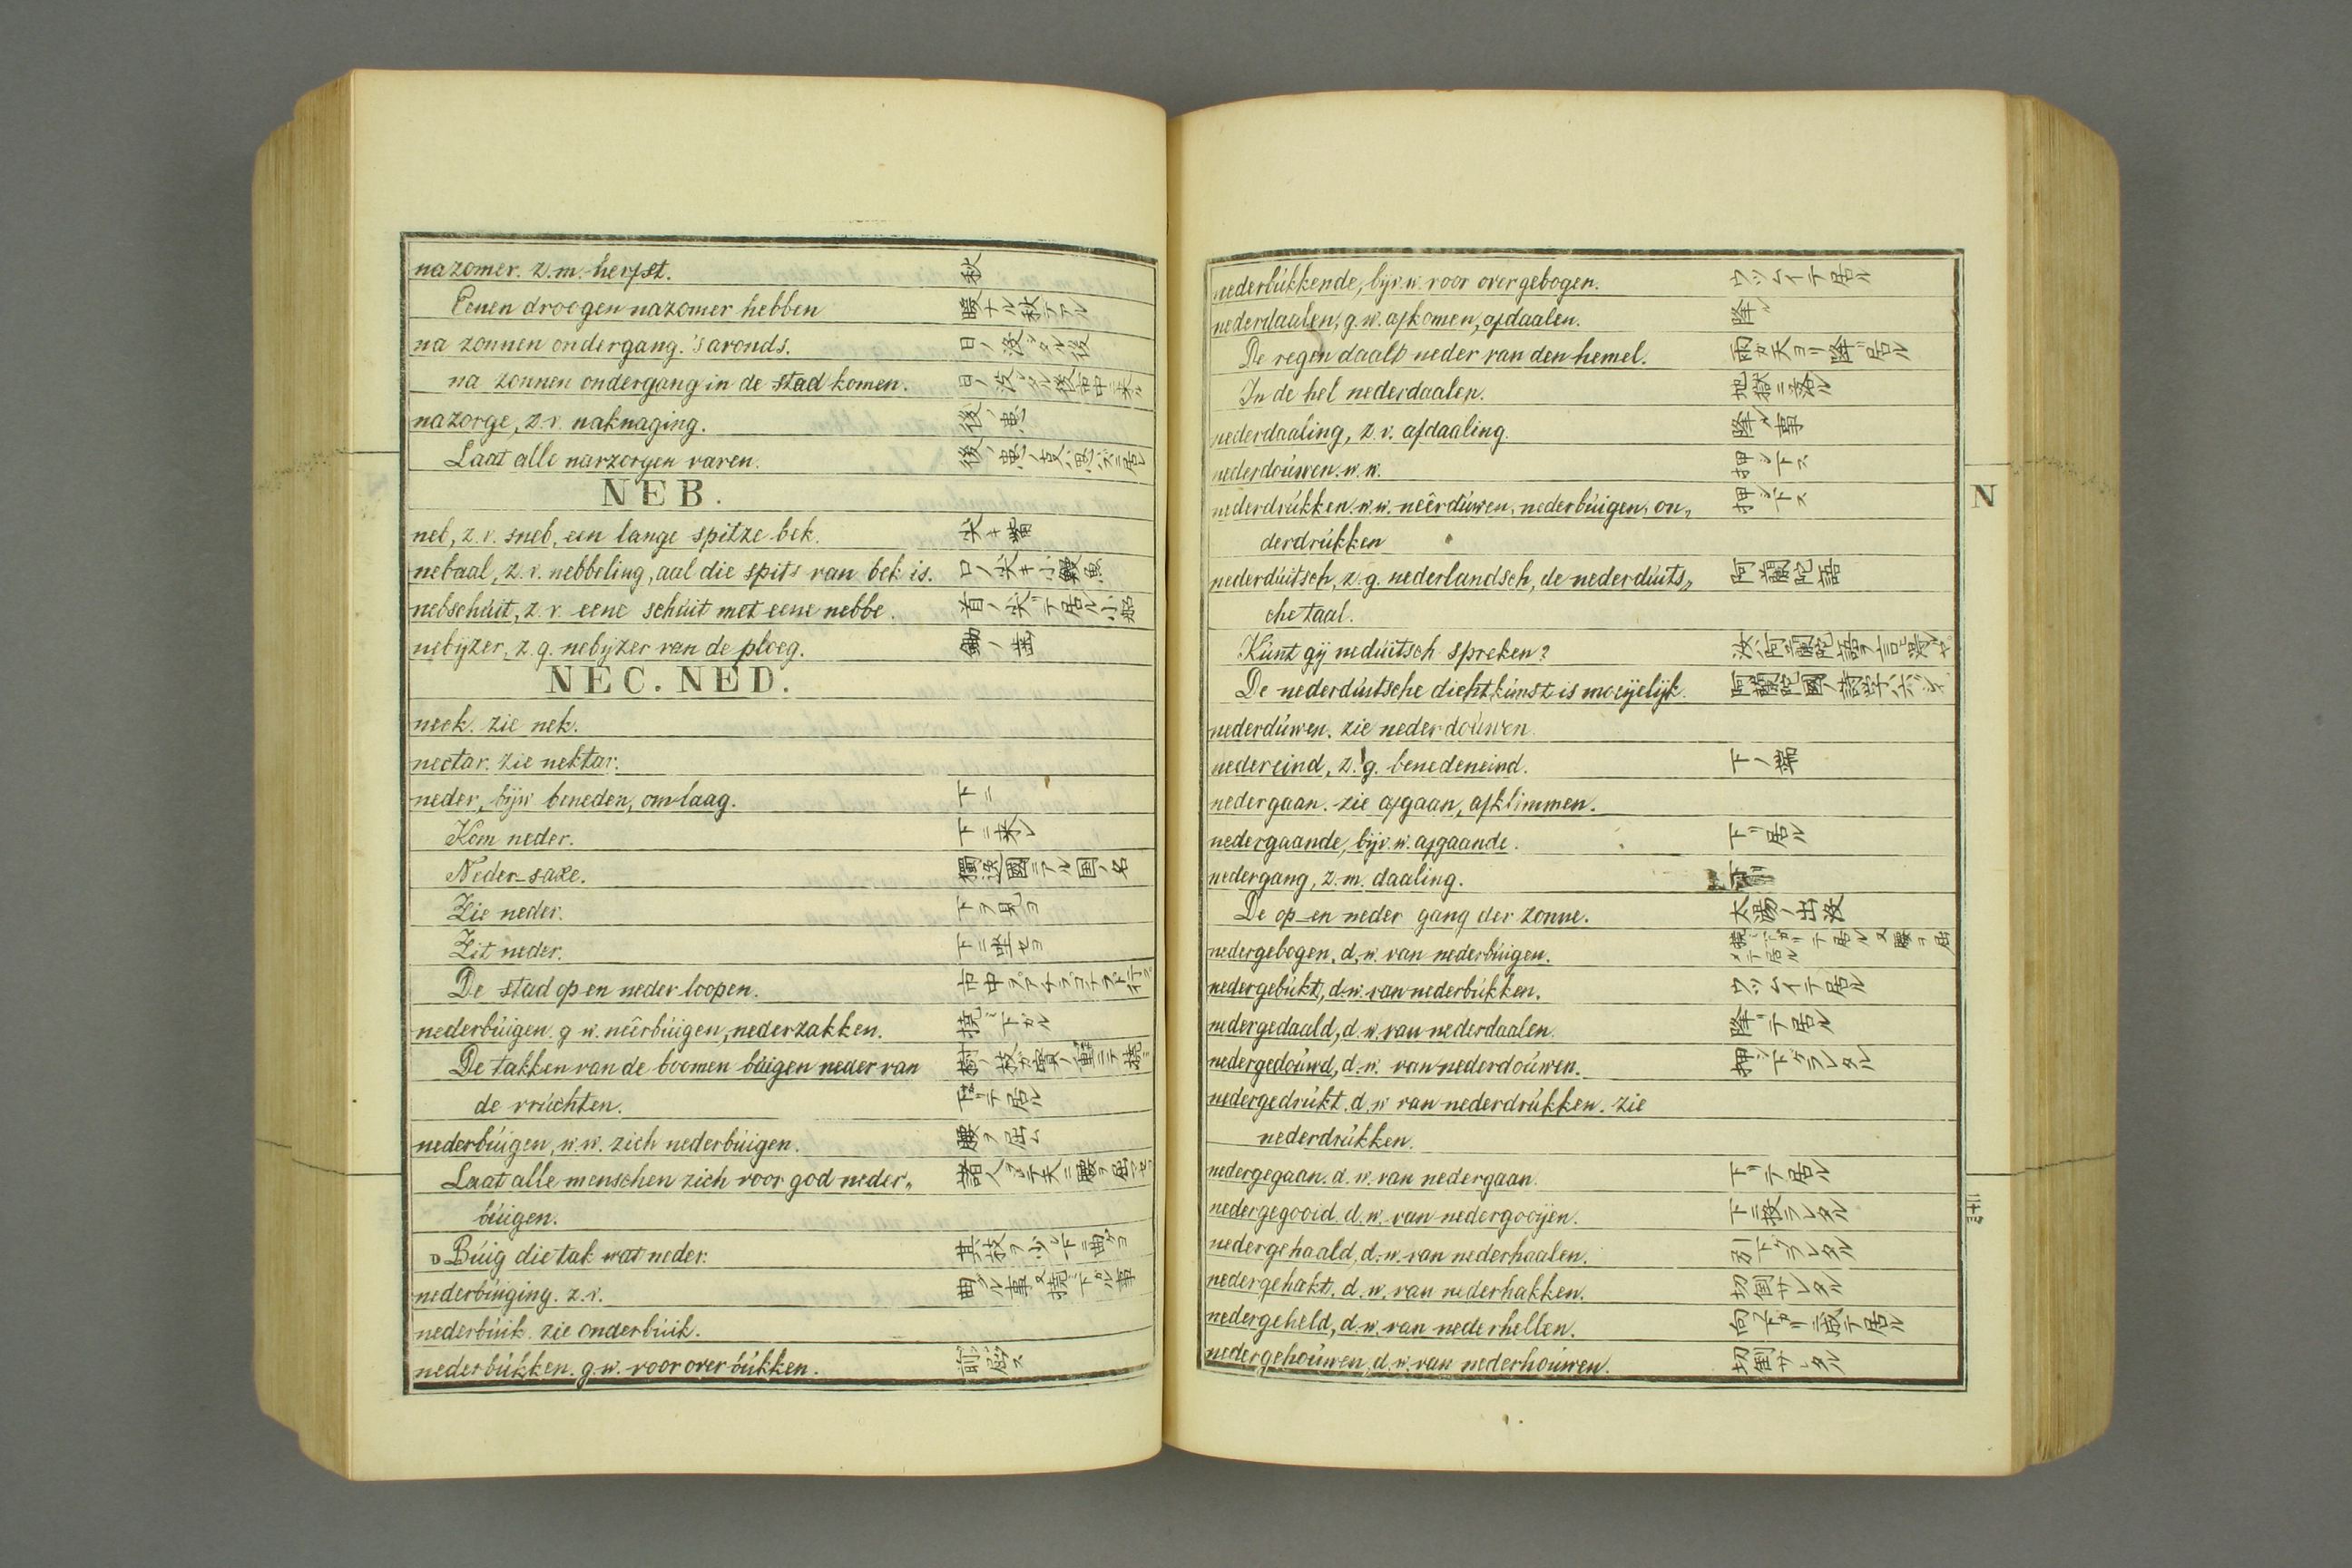 nazomer. z.m. herfst. 秋
Eenen droogen nazomer hebben 暖ナル秋デアル
na zonnen ondergang. 's avonds. 日ノ没シタル後
na zonnen ondergang in de stad komen. 日ノ没シタル後市中ニ来ル
nazorge, z.v. naknaging. 後ノ患
Laat alle narzorgen varen. 後ノ患
NEB.
neb, z.v. sneb, een lange spitze bek. 尖キ觜
nebaal, z.v. nebbeling, aal die spits van bek is. 口ノ尖キ小鰻魚
nebschúit, z.v. eene schúit met eene nebbe. 首ノ尖リテ居ル小船
nebijzer, z.g. nebijzer van de ploeg. 鋤ノ歯
NEC. NED.
neck. zie nek.
nectar. zie nektar.
neder, bijw beneden, omlaag. 下ニ
Kom neder. 下ニ来レ
Neder-saxe. 獨逸國ニアル国ノ名
Zie neder. 下ヲ見ヨ
Zit neder. 下ニ坐セヨ
De stad op en neder loopen. 市中ヲアチラコチラト行ク
nederbúigen. g.w. neêrbúigen, nederzakken. 撓ミ下ガル
De takken van de boomen búigen neder van 樹ノ枝ガ實ノ重ミニテ撓ミ
de vrúchten. 下ガリテ居ル
nederbúigen, w.w. zich nederbúigen. 腰ヲ屈ム
Laat alle menschen zich voor god neder„ 諸人ヲシテ天ニ腰ヲ屈マセヨ
búigen.
Búig die tak wat neder. 其枝ヲ少シ下ニ曲ケヨ
nederbúiging. z.v. 曲ル事又撓ミ下ル事
nederbúik. zie onderbúik.
nederbúkken. g.w. voor over búkken. 前ニ屈ス
nederbúkkende, bijv.w. voor overgebogen. ウツムイテ居ル
nederdaalen, g.w. afkomen, afdaalen. 降ル
De regen daalt neder van den hemel. 雨ガ天ヨリ降リ居ル
In de hel nederdaalen. 地獄ニ落ル
nederdaaling, z.v. afdaaling. 降ル事
nederdoúwen. w.w. 押シ下ス
nederdrúkken. w.w. neêrdúwen, nederbúigen, on„ 押シ下ス
derdrúkken
nederdúitsch, z.g. nederlandsch, de nederdúits„ 阿蘭陀語
che taal.
Kúnt gij nedúitsch spreken? 汝阿蘭陀語ヲ言ヒ得ルヤ
De nederdúitsche dichtkúnst is moeijelijk. 阿蘭陀國ノ詩学ハ六ツカシイ
nederdúwen. zie nederdoúwen.
nedereind, z.g. benedeneind. 下ノ端
nedergaan. zie afgaan, afklimmen.
nedergaande, bijv.w. afgaande. 下リ居ル
nedergang, z.m. daaling.
De op-en neder gang der zonne. 太陽ノ出没
nedergebogen, d.w. van nederbúigen. 撓ミ下ガリテ居ル又腰ヲ屈メテ居ル
nedergebúkt, d.w. van nederbúkken. ウツムイテ居ル
nedergedaald, d.w. van nederdaalen. 降リテ居ル
nedergedoúwd, d.w. van nederdoúwen. 押シ下ケラレタル
nedergedrúkt. d.w van nederdrúkken. zie
nederdrúkken.
nedergegaan. d.w. van nedergaan. 下リテ居ル
nedergegooid. d.w. van nedergooijen. 下ニ投ラレタル
nedergehaald, d.w. van nederhaalen. 引下ケラレタル
nedergehakt. d.w. van nederhakken. 切倒サレタル
nedergeheld, d.w. van nederhellen. 居ル
nedergehoúwen, d.w. van nederhoúwen. 切倒サレタル
N